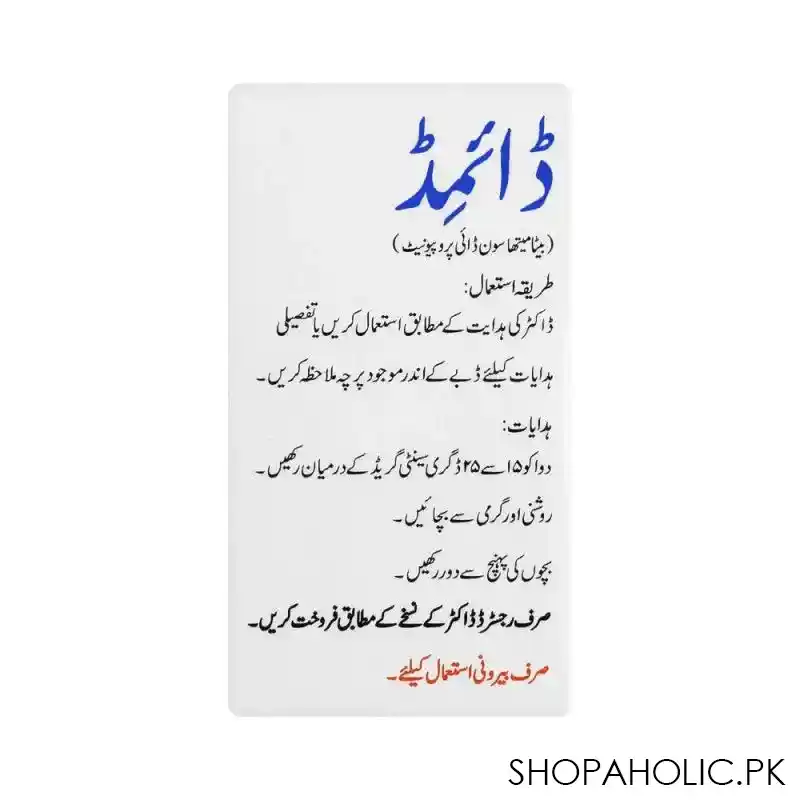 ڈائمِڈ
(بیٹا میتھاسون ڈائی پروپیونیٹ)
طریقہ استعمال:
ڈاکٹر کی ہدایت کے مطابق استعمال کریں یا تفصیلی
ہدایات کیلئے ڈبے کے اندر موجود پرچہ ملاحظہ کریں۔
ہدایات:
دوا کو ۱۵ سے ۲۵ ڈگری سینٹی گریڈ کے درمیان رکھیں۔
روشنی اور گرمی سے بچائیں۔
بچوں کی پہنچ سے دور رکھیں۔
صرف رجسٹرڈ ڈاکٹر کے نسخے کے مطابق فروخت کریں۔
صرف بیرونی استعمال کیلئے۔
SHOPAHOLIC.PK